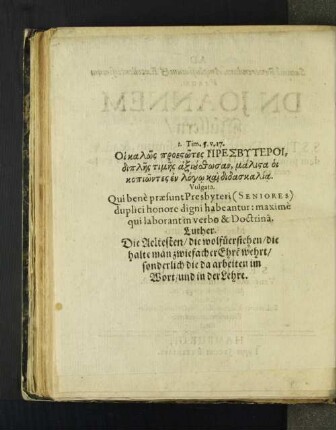 1. Tim. 5. v. 17.
Οἱ καλῶς προεστῶτες ΠΡΕΣΒΥΤΕΡΟΙ,
διπλῆς τιμῆς ἀξιούσθωσαν, μάλιστα οἱ
κοπιῶντες ἐν λόγῳ καὶ διδασκαλίᾳ.
Vulgata.
Qui benè præsunt Presbyteri (SENIORES)
duplici honore digni habeantur: maximè
qui laborant in verbo & Doctrinâ.
Luther.
Die Aeltesten / die wol fürstehen / die
halte man zwiefacher Ehre wehrt /
sonderlich die da arbeiten im
Wort / und in der Lehre.